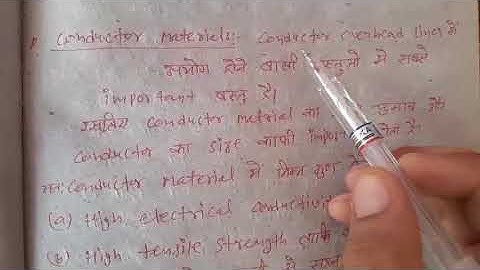 Conductor Materials:- Conductor overhead lines में
उपयोग होने वाली वस्तुओं में सबसे
important वस्तु है।
इसलिए conductor metrial का चुनाव और
conductor का size काफी important होता है।
अतः conductor material में निम्न गुण
(a) High electrical conductivi
(b) High tensile strength ताकि